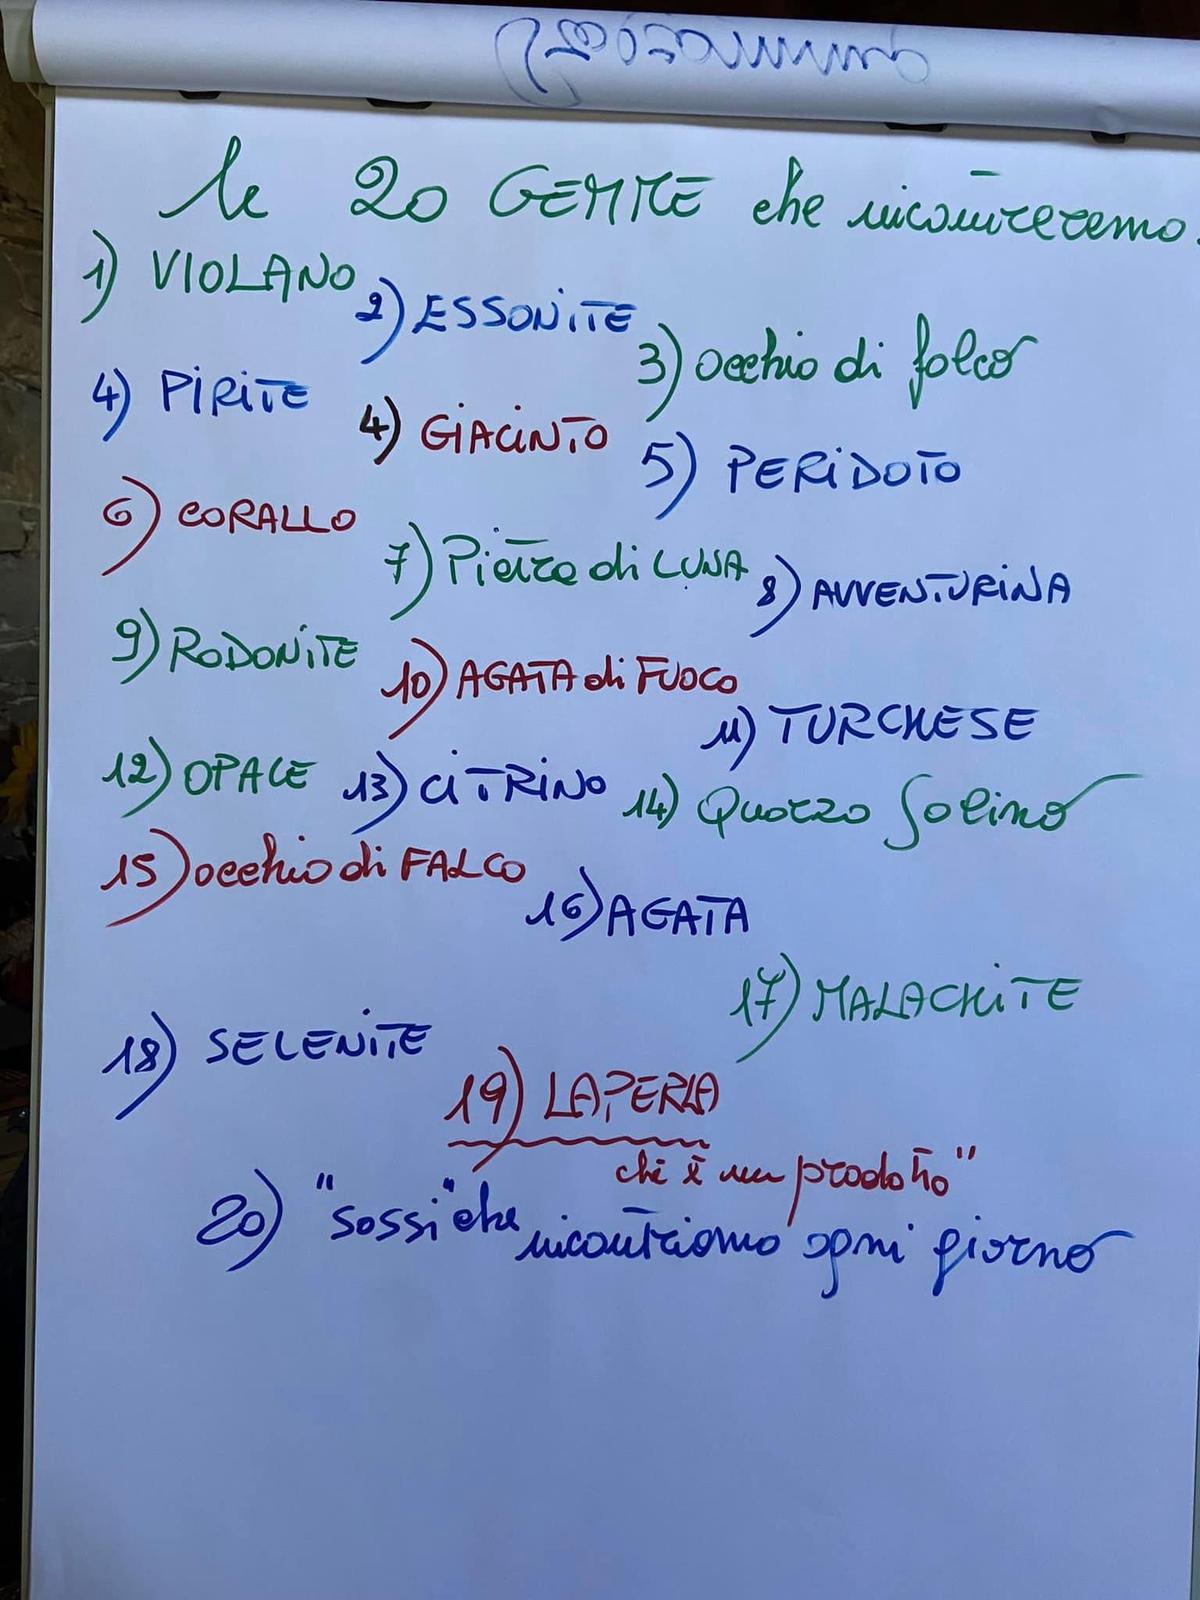 le 20 GEMME che incontreremo.
1) VIOLANO
2) ESSONITE
3) occhio di falco
4) PIRITE
4) GIACINTO
5) PERIDOTO
6) CORALLO
7) Pietra di LUNA
8) AVVENTURINA
9) RODONITE
10) AGATA di FUOCO
11) TURCHESE
12) OPALE
13) CITRINO
14) Quarzo Salino
15) occhio di FALCO
16) AGATA
17) MALACHITE
18) SELENITE
19) LA PERLA
che è un prodotto"
20) "sassi" che incontriamo ogni giorno